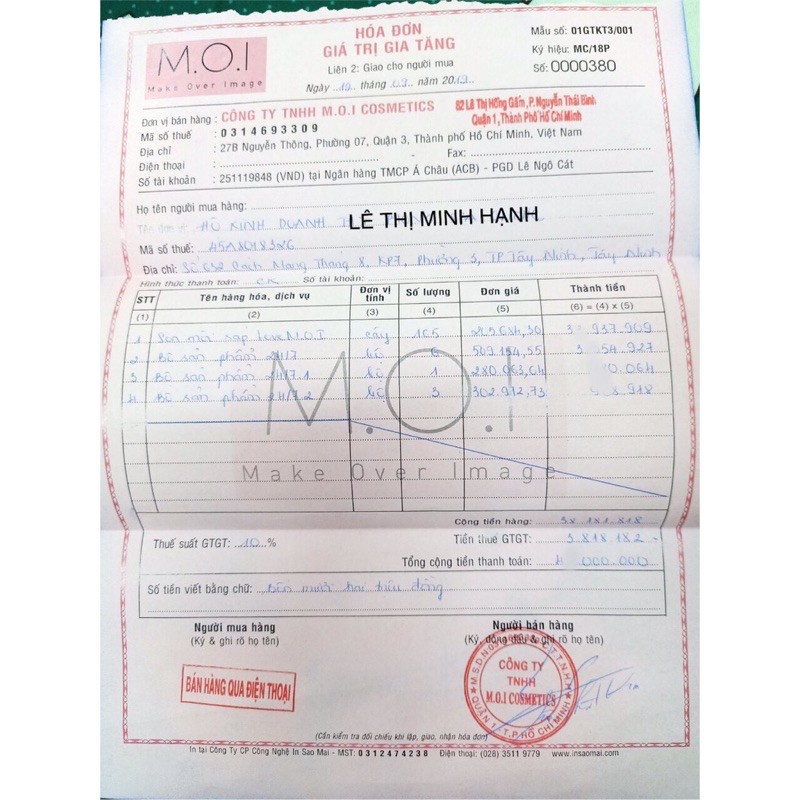 M.O.I
Make Over Image
HÓA ĐƠN
GIÁ TRỊ GIA TĂNG
Liên 2: Giao cho người mua
Ngày 10 tháng 09 năm 2019
Mẫu số: 01GTKT3/001
Ký hiệu: MC/18P
Số: 0000380
Đơn vị bán hàng : CÔNG TY TNHH M.O.I COSMETICS
82 Lê Thị Hồng Gấm, P. Nguyễn Thái Bình
Quận 1, Thành Phố Hồ Chí Minh
Mã số thuế : 0314693309
Địa chỉ : 27B Nguyễn Thông, Phường 07, Quận 3, Thành phố Hồ Chí Minh, Việt Nam
Điện thoại : - Fax:
Số tài khoản : 251119848 (VND) tại Ngân hàng TMCP Á Châu (ACB) - PGD Lê Ngô Cát
Họ tên người mua hàng:
HỘ KINH DOANH
LÊ THỊ MINH HẠNH
Mã số thuế: 45A8018326
Địa chỉ: Số 632 Cách Mạng Tháng 8, KP7, Phường 3, TP Tây Ninh, Tây Ninh
Hình thức thanh toán: CK Số tài khoản:
STT Tên hàng hóa, dịch vụ Đơn vị tính Số lượng Đơn giá Thành tiền
(1) (2) (3) (4) (5) (6) = (4) x (5)
1 Son môi sáp Love M.O.I cây
2 Bộ sản phẩm 24/7 bộ 509.154,55
3 Bộ sản phẩm 24/7.1 bộ 1 280.063,64
4 Bộ sản phẩm 24/7.2 bộ 3 302.972,73
M.O.I
Make Over Image
Cộng tiền hàng: 38.181.818
Thuế suất GTGT: 10 % Tiền thuế GTGT: 3.818.182
Tổng cộng tiền thanh toán: 000.000
Số tiền viết bằng chữ: Bốn mươi hai triệu đồng
Người mua hàng
(Ký & ghi rõ họ tên)
Người bán hàng
(Ký, đóng dấu & ghi rõ họ tên)
BÁN HÀNG QUA ĐIỆN THOẠI
CÔNG TY
TNHH
M.O.I COSMETICS
QUẬN 1 - T.P. HỒ CHÍ MINH
(Cần kiểm tra đối chiếu khi lập, giao, nhận hóa đơn)
In tại Công Ty CP Công Nghệ In Sao Mai - MST: 0312474238 Điện thoại: (028) 3511 9779 www.insaomai.com